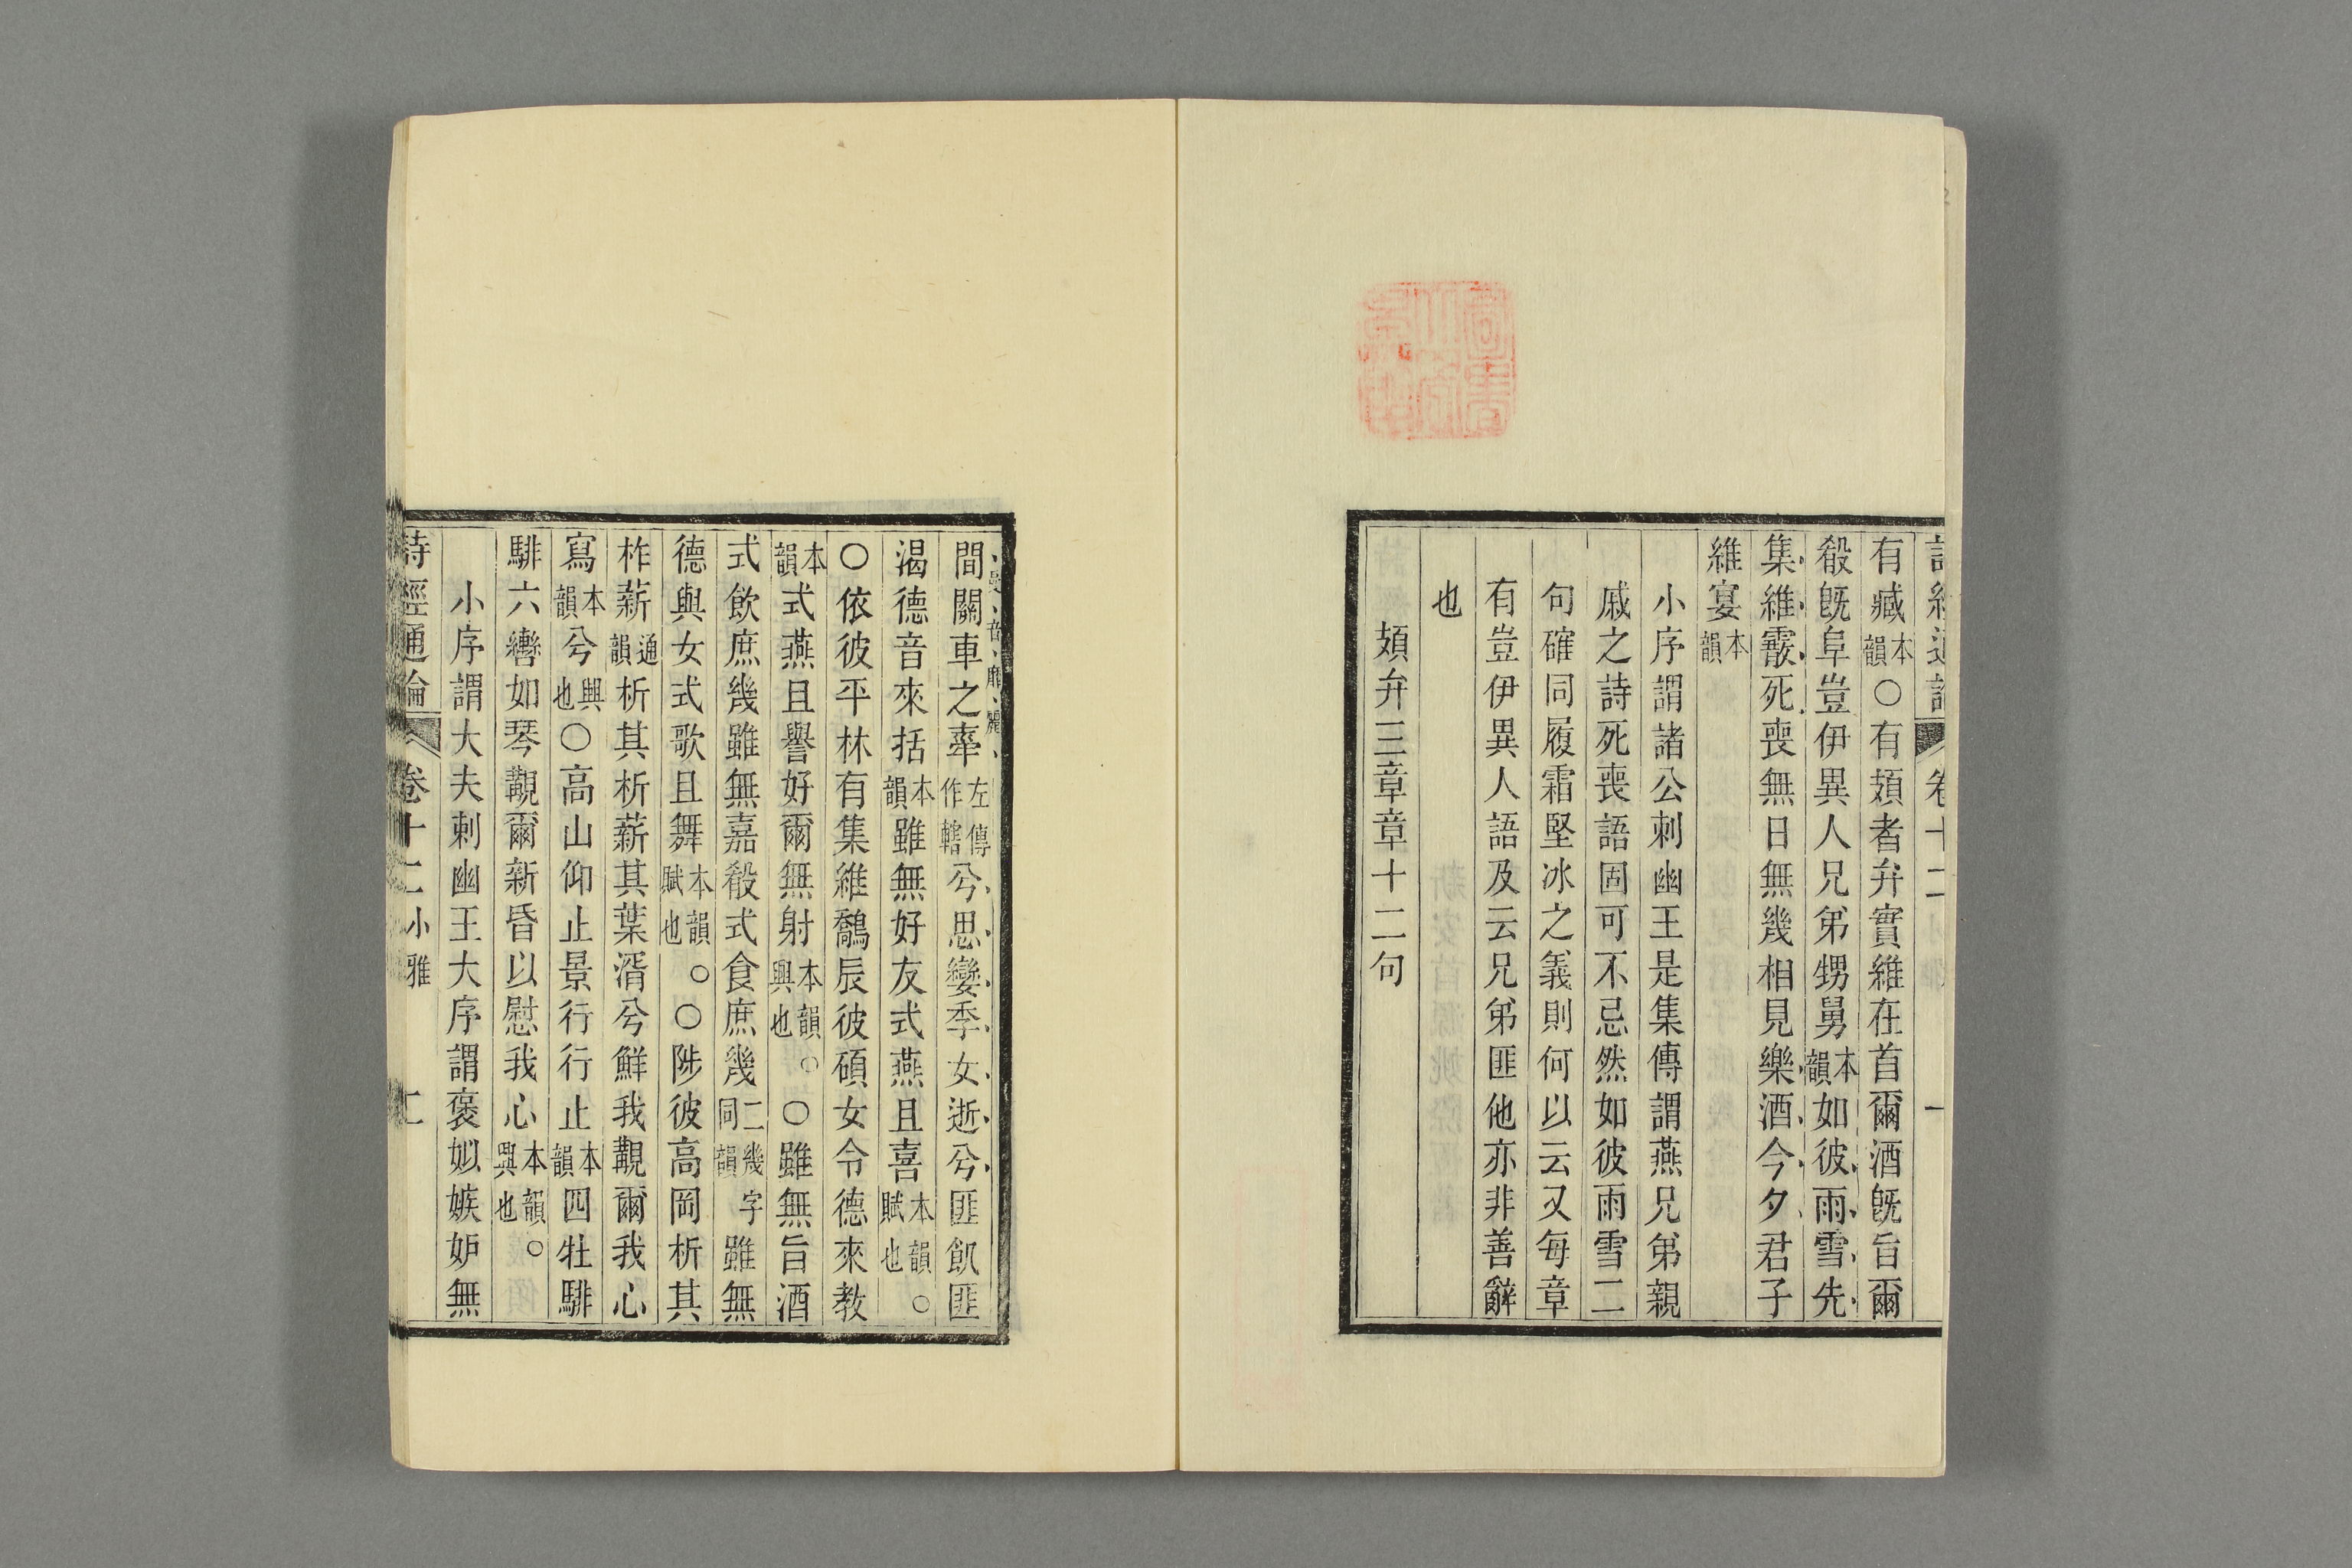 詩經通論 卷十二 一
有臧本韻○有頍者弁實維在首爾酒旣旨爾
殽旣阜豈伊異人兄弟甥舅本韻如彼雨雪先
集維霰死喪無日無幾相見樂酒今夕君子
維宴本韻
小序謂諸公刺幽王是集傳謂燕兄弟親
戚之詩死喪語固可不忌然如彼雨雪二
句確同履霜堅冰之義則何以云又每章
有豈伊異人語及云兄弟匪他亦非善辭
也
頍弁三章章十二句
間關車之舝左傳作轄兮思孌季女逝兮匪飢匪
渴德音來括本韻雖無好友式燕且喜本韻賦也○
○依彼平林有集維鷮辰彼碩女令德來教
本韻式燕且譽好爾無射本韻興也○○雖無旨酒
式飲庶幾雖無嘉殽式食庶幾二幾字同韻雖無
德與女式歌且舞本韻賦也○○陟彼高岡析其
柞薪通韻析其析薪其葉湑兮鮮我覯爾我心
寫本韻兮興也○高山仰止景行行止本韻四牡騑
騑六轡如琴覯爾新昏以慰我心本韻興也○
小序謂大夫刺幽王大序謂褒姒嫉妒無
詩經通論 卷十二 小雅 二